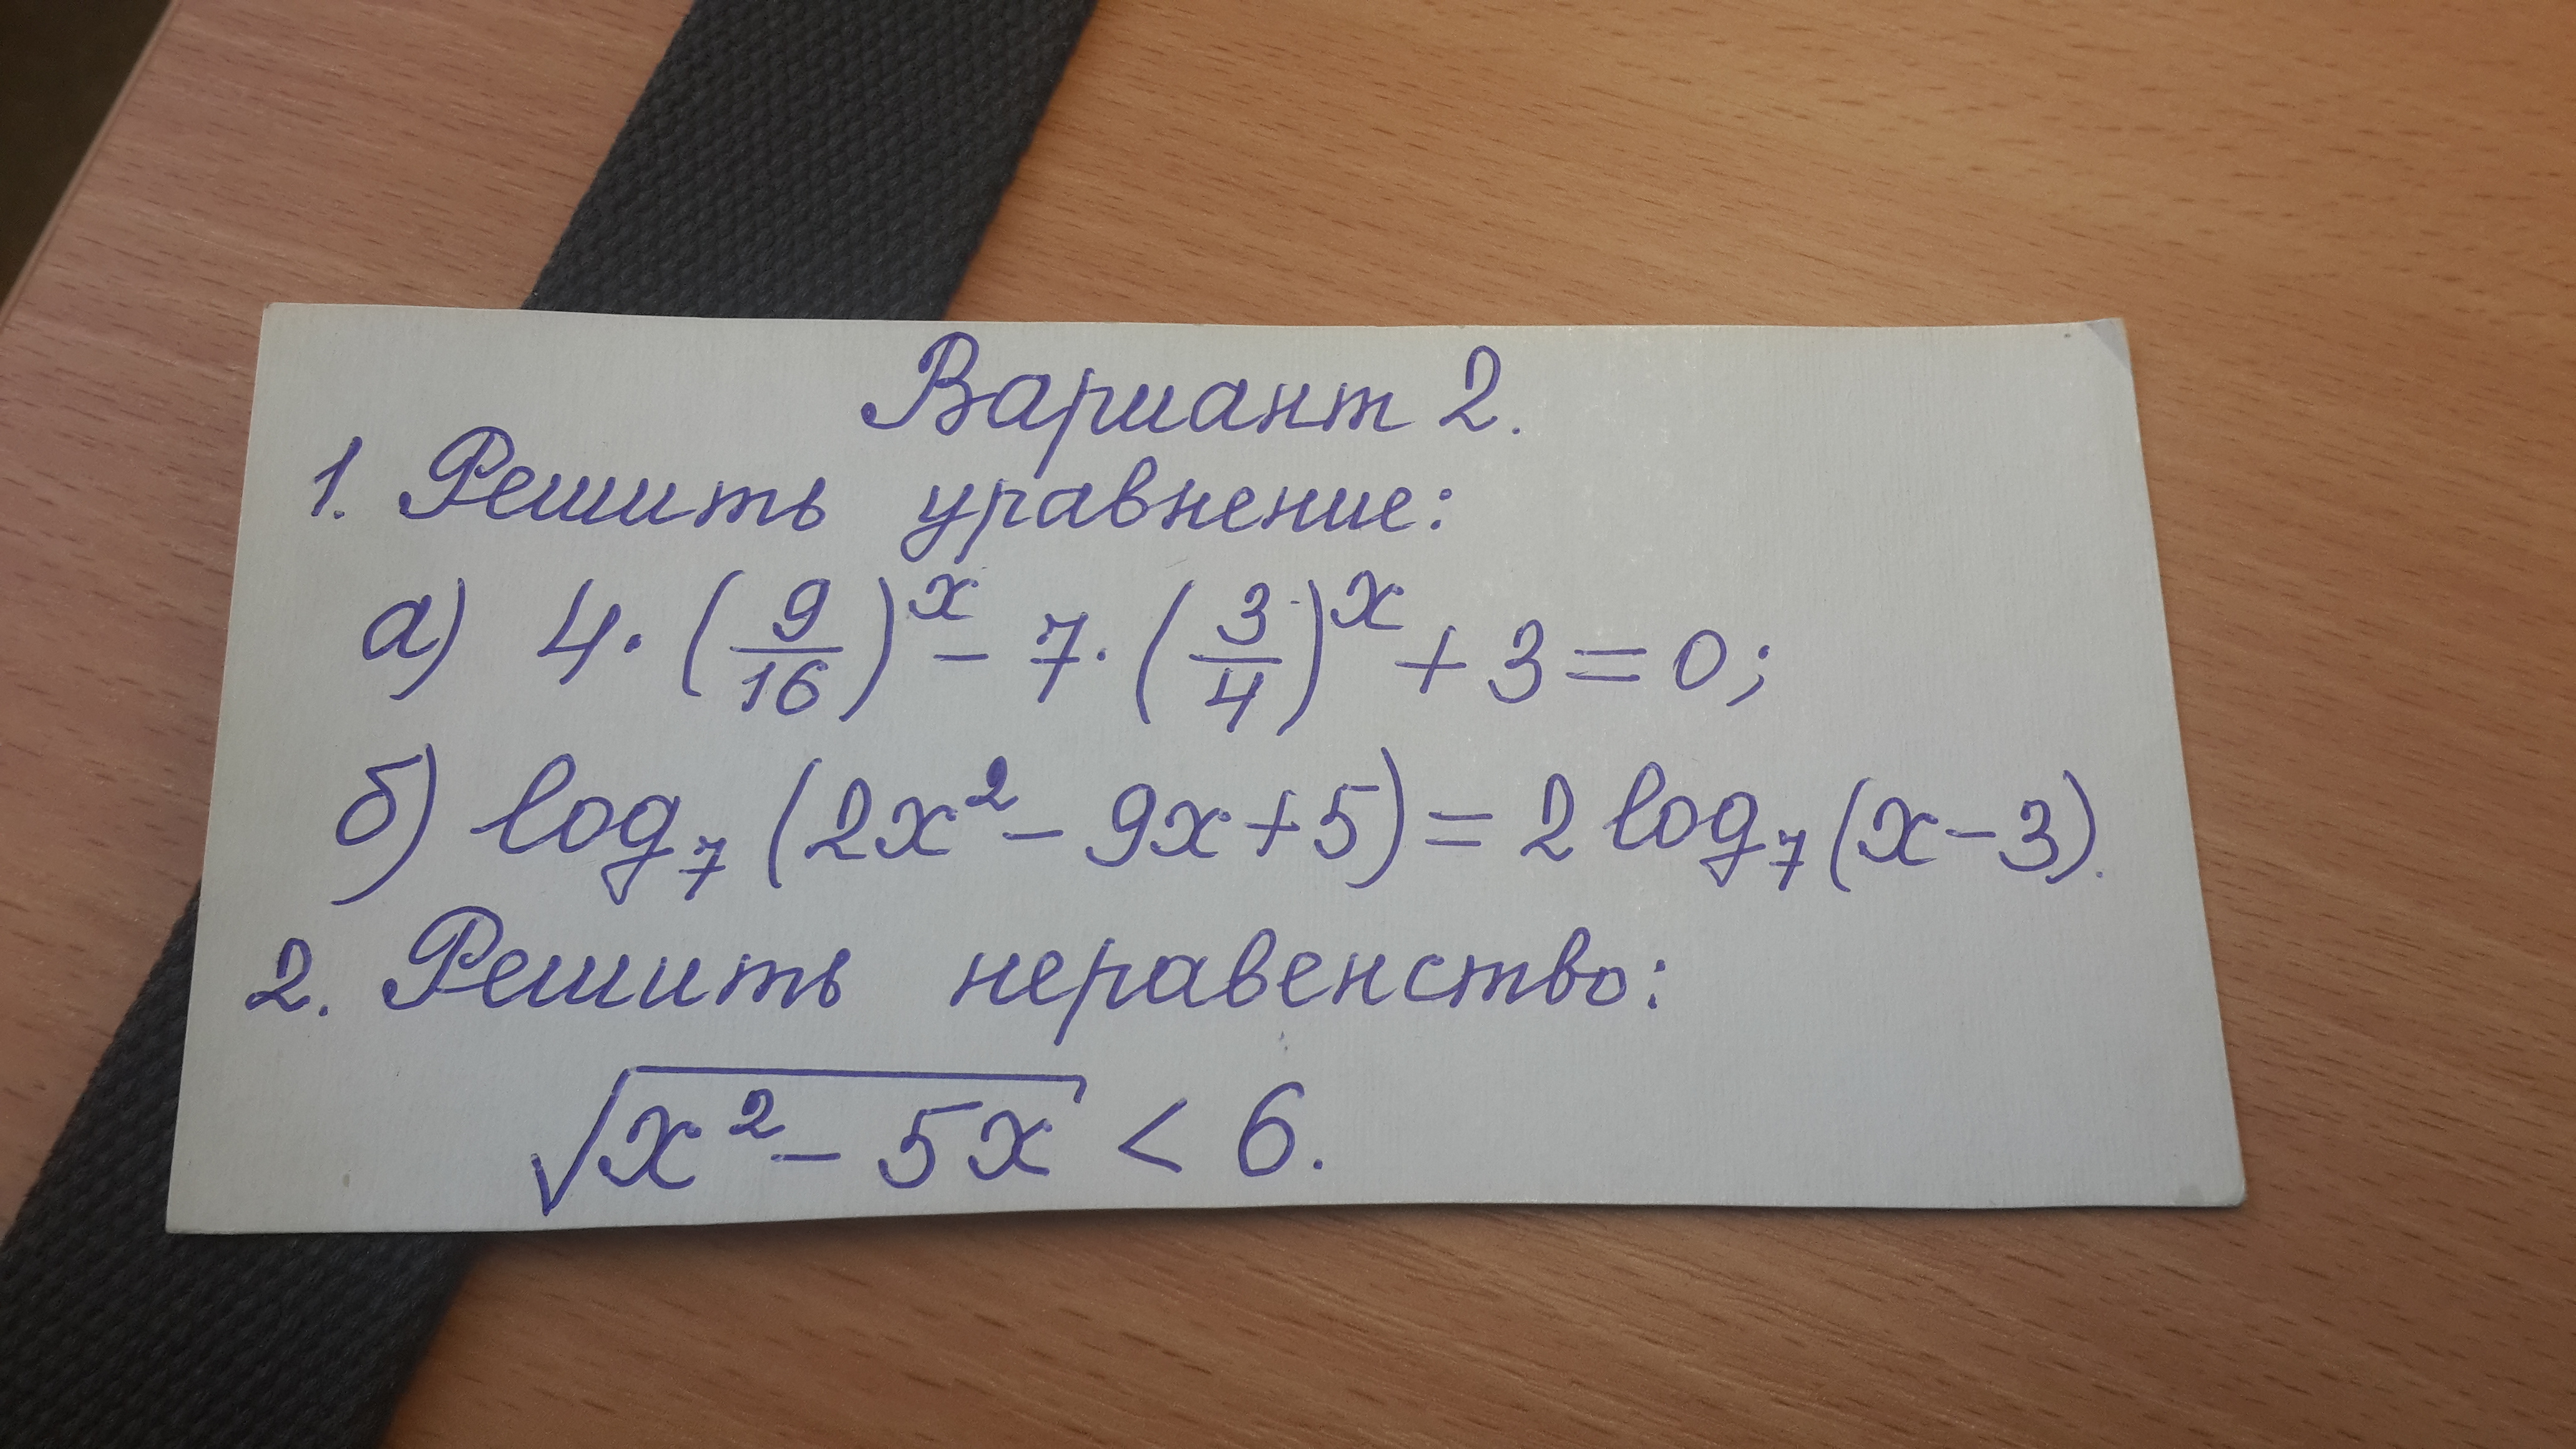 Вариант 2.
1. Решить уравнение:
а) 4·(9/16)^x − 7·(3/4)^x + 3 = 0;
б) log₇(2x² − 9x + 5) = 2 log₇(x − 3).
2. Решить неравенство:
√(x² − 5x) < 6.